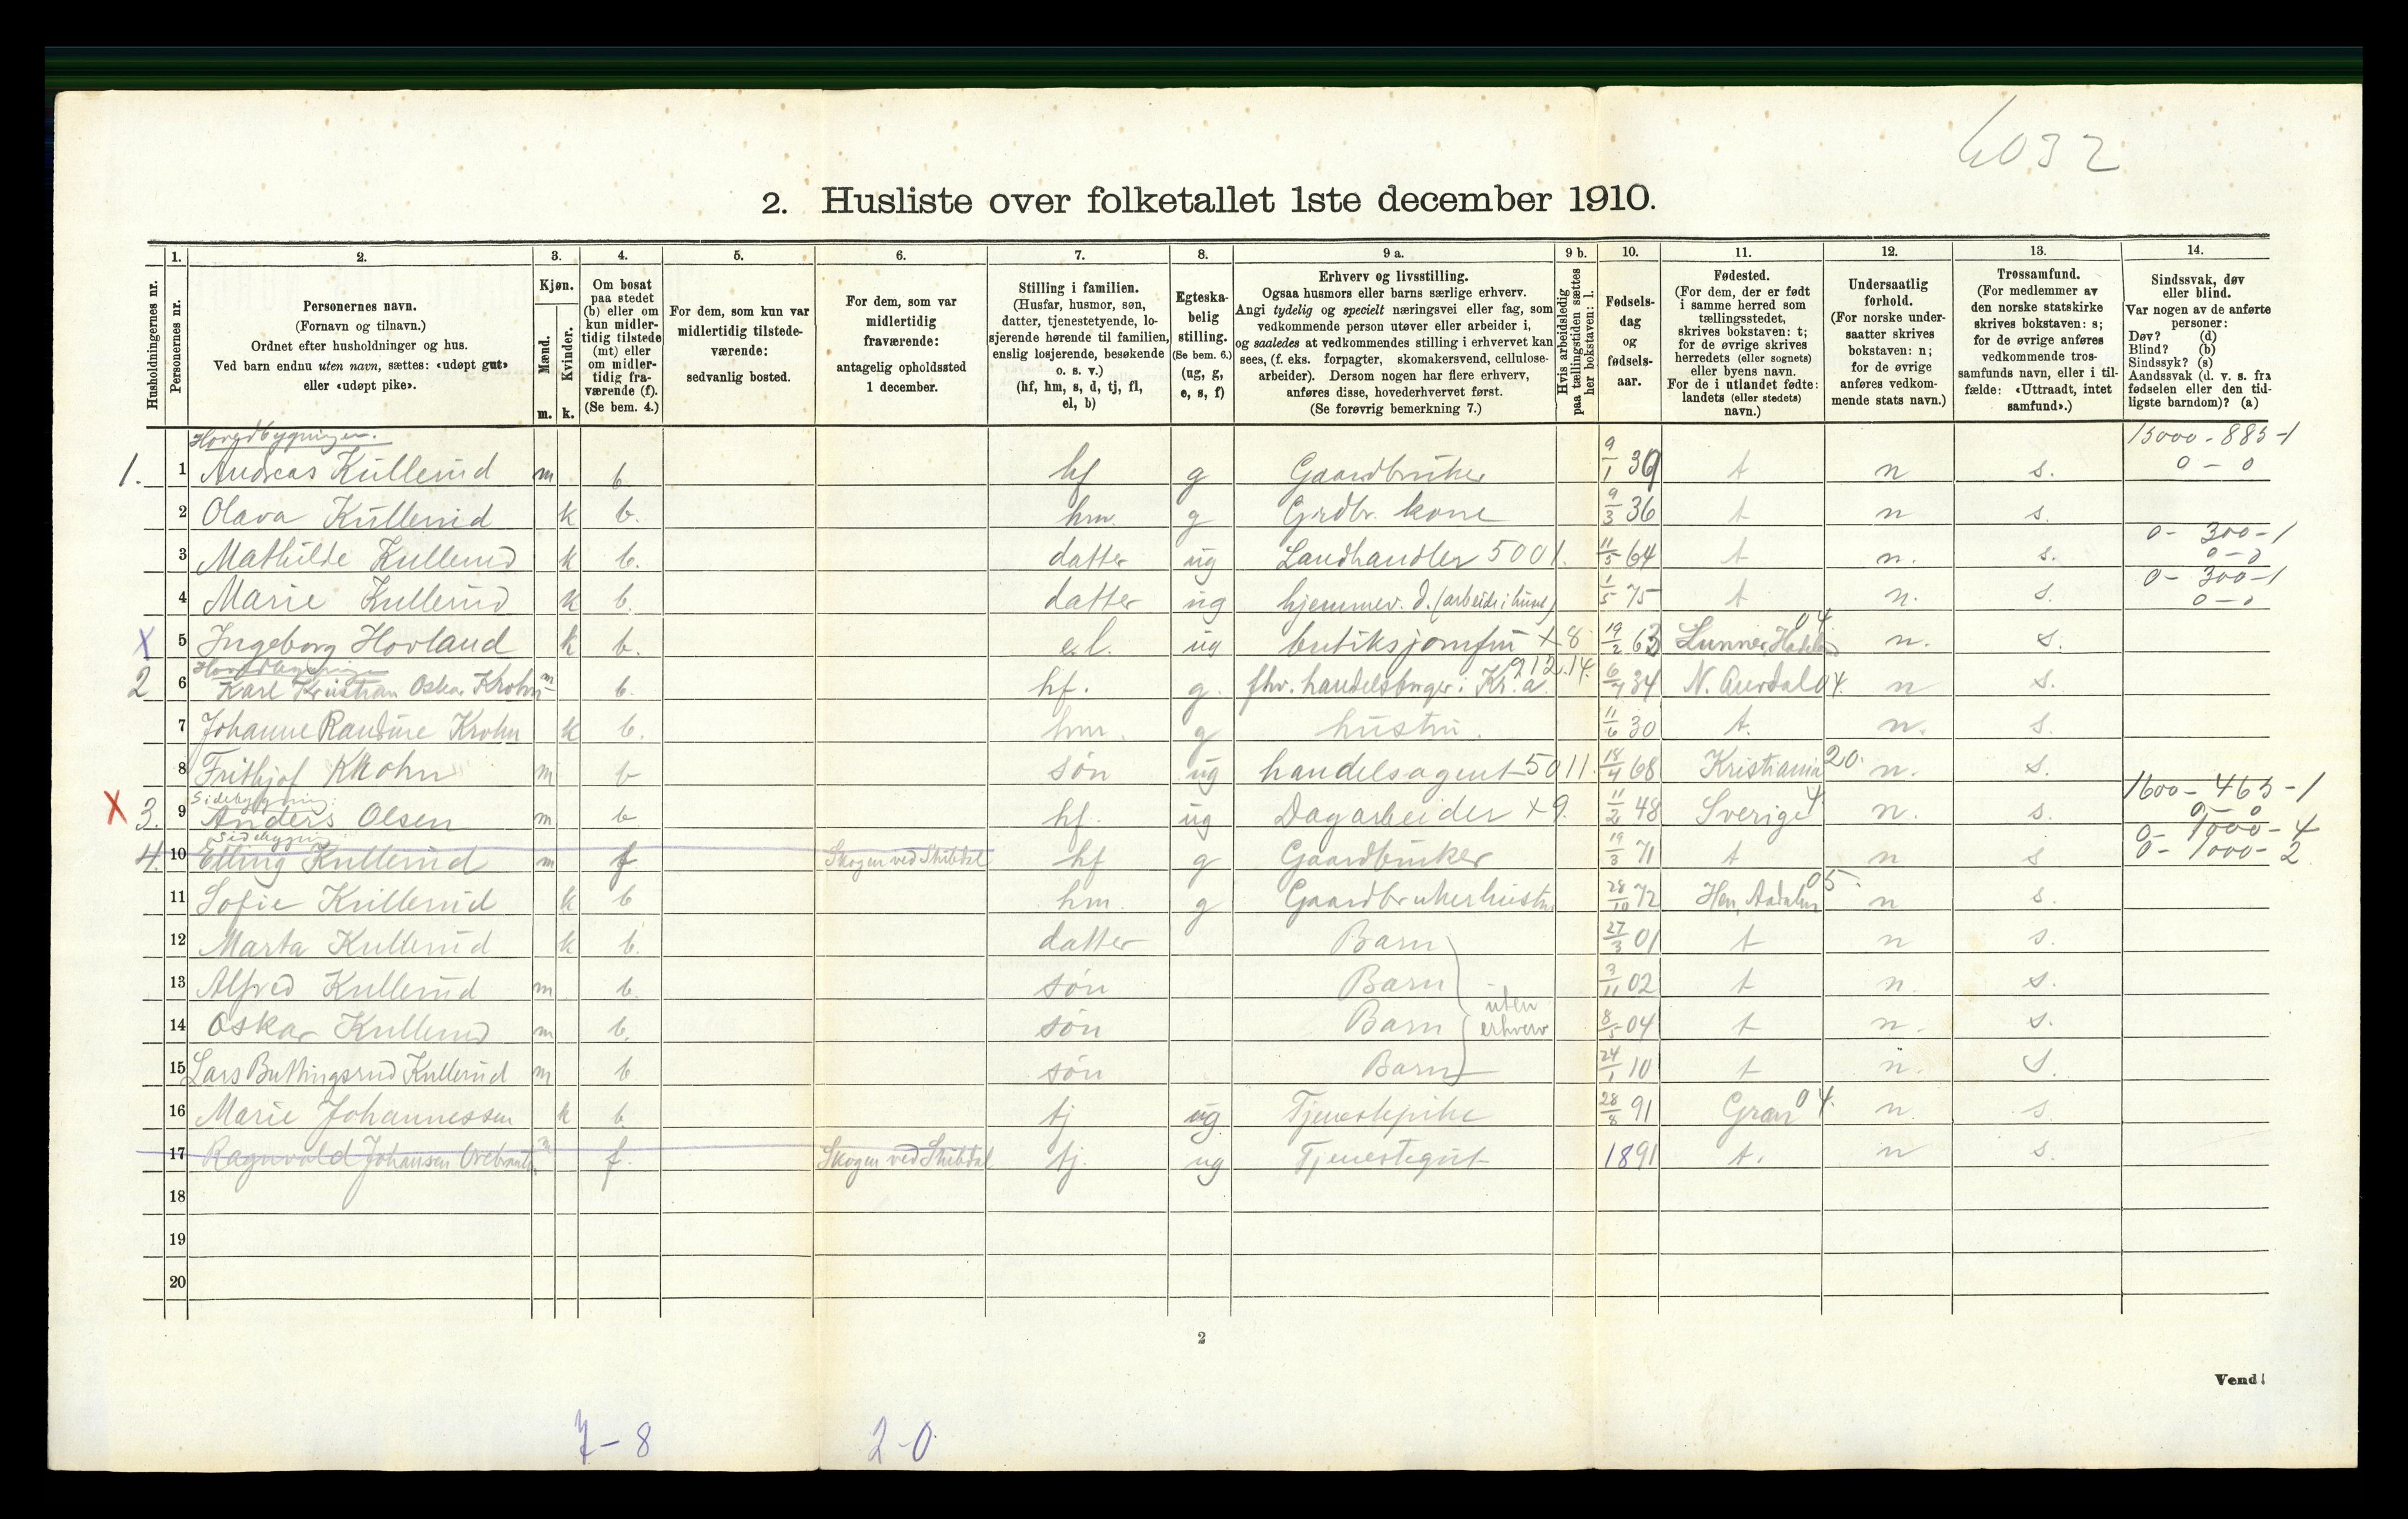 6032
2. Husliste over folketallet 1ste december 1910.
Husholdningernes nr.
1. Personernes nr.
2. Personernes navn. (Fornavn og tilnavn.) Ordnet efter husholdninger og hus. Ved barn endnu uten navn, sættes: «udøpt gut» eller «udøpt pike».
3. Kjøn. Mænd. m. Kvinder. k.
4. Om bosat paa stedet (b) eller om kun midlertidig tilstede (mt) eller om midlertidig fraværende (f). (Se bem. 4.)
5. For dem, som kun var midlertidig tilstedeværende: sedvanlig bosted.
6. For dem, som var midlertidig fraværende: antagelig opholdssted 1 december.
7. Stilling i familien. (Husfar, husmor, søn, datter, tjenestetyende, losjerende hørende til familien, enslig losjerende, besøkende o. s. v.) (hf, hm, s, d, tj, fl, el, b)
8. Egteskabelig stilling. (Se bem. 6.) (ug, g, e, s, f)
9 a. Erhverv og livsstilling. Ogsaa husmors eller barns særlige erhverv. Angi tydelig og specielt næringsvei eller fag, som vedkommende person utøver eller arbeider i, og saaledes at vedkommendes stilling i erhvervet kan sees, (f. eks. forpagter, skomakersvend, cellulosearbeider). Dersom nogen har flere erhverv, anføres disse, hovederhvervet først. (Se forøvrig bemerkning 7.)
9 b. Hvis arbeidsledig paa tællingstiden sættes her bokstaven: l.
10. Fødselsdag og fødselsaar.
11. Fødested. (For dem, der er født i samme herred som tællingsstedet, skrives bokstaven: t; for de øvrige skrives herredets (eller sognets) eller byens navn. For de i utlandet fødte: landets (eller stedets) navn.)
12. Undersaatlig forhold. (For norske undersaatter skrives bokstaven: n; for de øvrige anføres vedkommende stats navn.)
13. Trossamfund. (For medlemmer av den norske statskirke skrives bokstaven: s; for de øvrige anføres vedkommende trossamfunds navn, eller i tilfælde: «Uttraadt, intet samfund».)
14. Sindssvak, døv eller blind. Var nogen av de anførte personer: Døv? (d) Blind? (b) Sindssyk? (s) Aandssvak (d. v. s. fra fødselen eller den tidligste barndom)? (a)
Hovedbygningen.
1. 1 Andreas Kullerud m b. hf g Gaardbruker 9/1 39 t n s. 15000 - 885 - 1 0 - 0
2 Olava Kullerud k b. hm. g Grdbr. kone 9/3 36 t n s.
3 Mathilde Kullerud k b. datter ug Landhandler 5001. 11/5 64 t n. s. 0 - 300 - 1 0 - 0
4 Marie Kullerud k b. datter ug hjemmev. d. (arbeide i huset) 1/5 75 t n. s. 0 - 300 - 1 0 - 0
X 5 Ingeborg Hovland k b. el. ug butiksjomfru + 8 19/2 63 Lunner, Hadeland 04. n. s.
Hovedbygningen
2 6 Karl Kristian Oskar Krohn m b. hf. g. fhv. handelsborger i Kr.a. 912.14. 34 N. Aurdal 04. n s.
7 Johanne Randine Krohn k b. hm. g hustru. 11/6 30 t. n. s.
8 Frithjof Krohn m b søn ug handelsagent 5011. 18/4 68 Kristiania 20. n. s.
Sidebygning.
X 3. 9 Anders Olsen m b hf. ug Dagarbeider + 9. 11/2 48 Sverige 4 n. s. 1600 - 465 - 1 0 - 0
Sidebygning
4. 10 Elling Kullerud m f Skogen ved Stubdal hf g Gaardbruker 19/3 71 t n s 0 - 1000 - 4 0 - 1000 - 2
11 Sofie Kullerud k b hm. g Gaardbrukerhustru 28/10 72 Hen, Aadalen 05. n s.
12 Marta Kullerud k b. datter Barn 27/3 01 t n s.
13 Alfred Kullerud m b. søn Barn 3/11 02 t n. s.
uten erhverv
14 Oskar Kullerud m b. søn Barn 8/5 04 t n. s.
15 Lars Buttingsrud Kullerud m b søn Barn 24/1 10 t n. s.
16 Marie Johannessen k b tj ug. Tjenestepike 28/8 91 Gran 04. n. s
17 Ragnvald Johansen m f. Skogen ved Stubdal tj. ug Tjenestegut 1891 t. n s.
18
19
20
2
Vend!
7 - 8
2 - 0